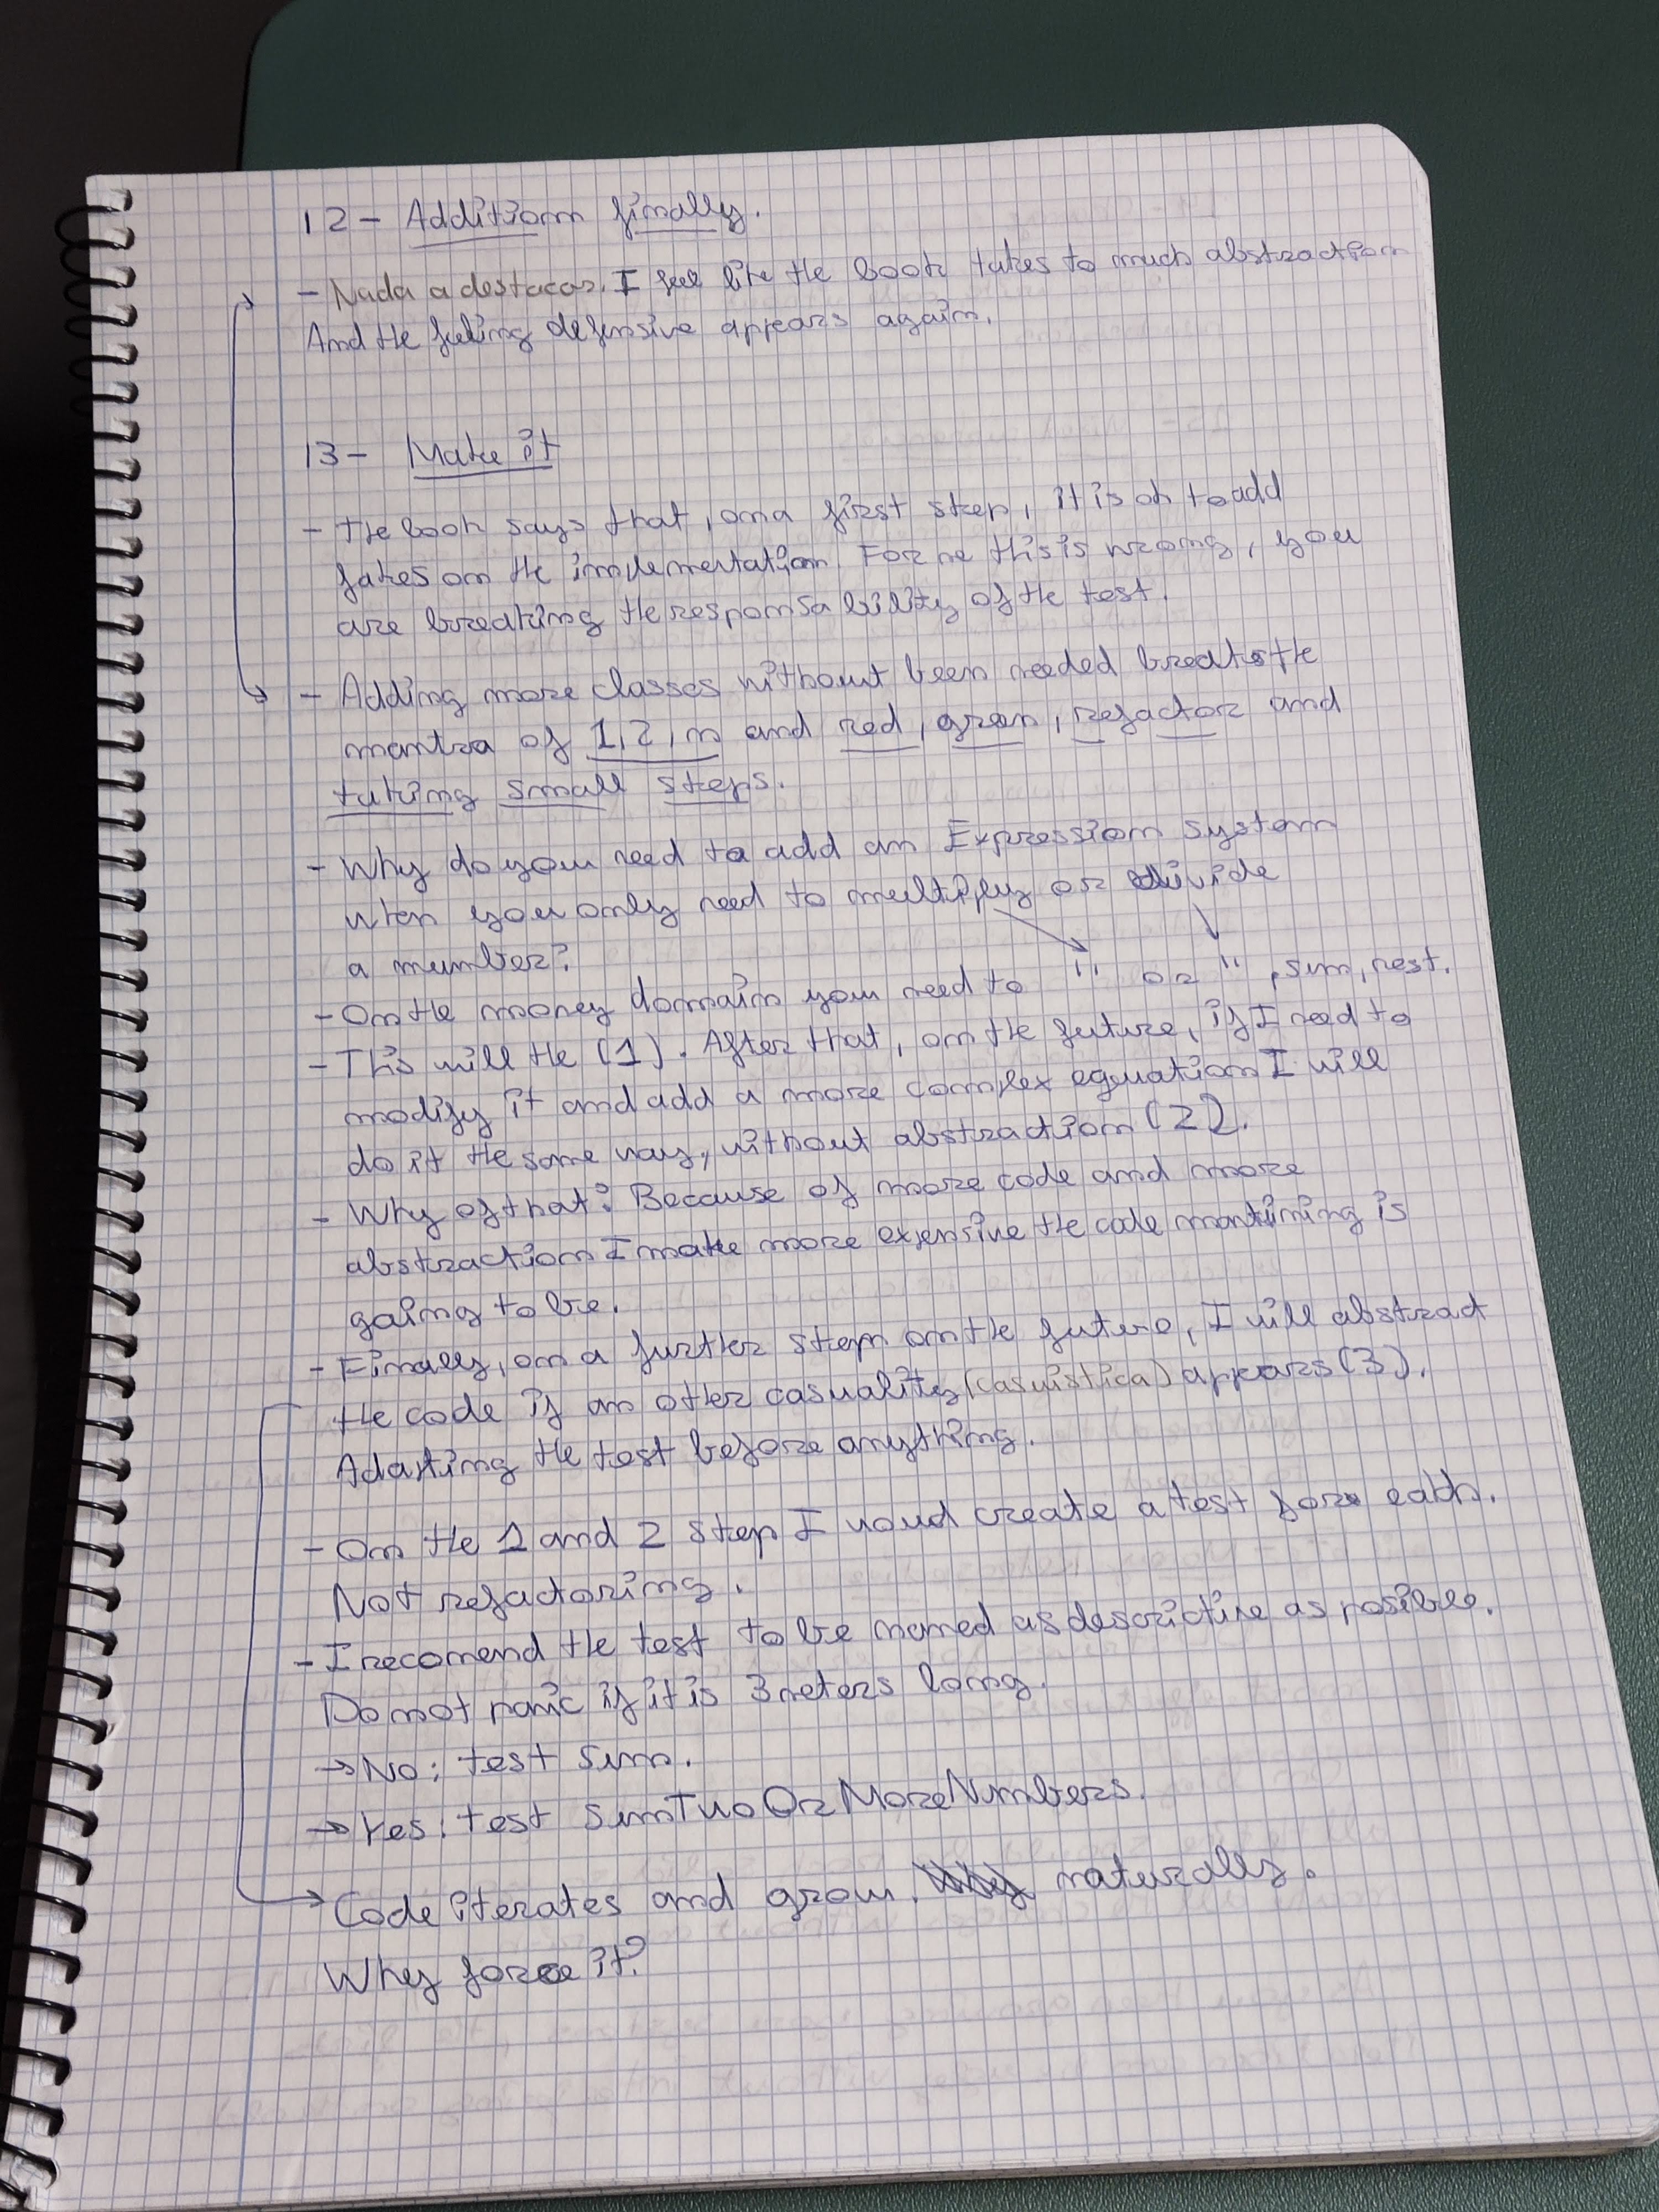 12- Addition finally.
- Nada a destacar. I feel like the book takes to much abstraction
And the feeling defensive appears again.
13- Make it
- The book says that, on a first step, it is ok to add
fakes on the implementation. For me this is wrong, you
are breaking the responsability of the test.
- Adding more classes without been needed breaks the
mantra of 1,2,n and red, green, refactor and
taking small steps.
- Why do you need to add an Expression system
when you only need to multiply or divide
a number?
- On the money domain you need to " or ", sum, rest.
- This will the (1). After that, on the future, if I need to
modify it and add a more complex equation I will
do it the same way, without abstraction (2).
- Why of that? Because of more code and more
abstraction I make more expensive the code mantining is
going to be.
- Finally, on a further step on the future, I will abstract
the code if an other casuality (casuistica) appears (3).
Adapting the test before anything.
- On the 1 and 2 step I woud create a test for each.
Not refactoring.
- I recomend the test to be named as descriptive as posible.
Do not panic if it is 3 meters long.
→ No: test Sum.
→ Yes: test SumTwoOrMoreNumbers.
Code iterates and grow. naturally.
Why force it?